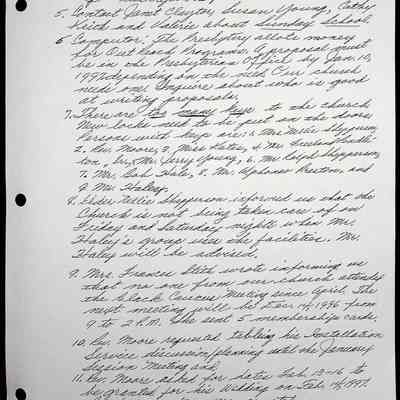 5. Contact Janet Claytor, Susan Young, Cathy
Keith and Valerie about Sunday School.
6. Computer: The Presbytery allots money
for Out Reach Programs. A proposal must
be in the Presbyterian Office by Jan. 10,
1997 depending on the need. Our church
needs one. Inquire about who is good
at writing proposals.
7. There are too many keys to the church
New locks need to be put on the doors
Persons with keys are: 1. Mrs. Nellie Shepperson
2. Rev. Moore, 3. Miss Yates, 4. Mr.
ton, Sr., Mr. Jerry Young, 6. Mr. Lloyd Shepperson,
7. Mrs. Bob Hale, 8. Mr. Alphonso Preston, and
9. Mr. Haley.
8. Elder Nellie Shepperson informed us that the
Church is not being taken care of on
Friday and Saturday nights when Mr.
Haley's group uses the facilities. Mr.
Haley will be advised.
9. Mrs. Frances Stith wrote informing us
that no one from our church attended
the Black Caucus Meeting since April. The
next meeting will be Dec. 14, 1996 from
9 to 2 P.M. She sent 5 membership cards.
10. Rev. Moore requested tabling his Installation
Service discussion/planning until the January
Session Meeting and
11. Rev. Moore asked for dates Feb. 13-16 to
be granted for his wedding on Feb. 14, 1997.